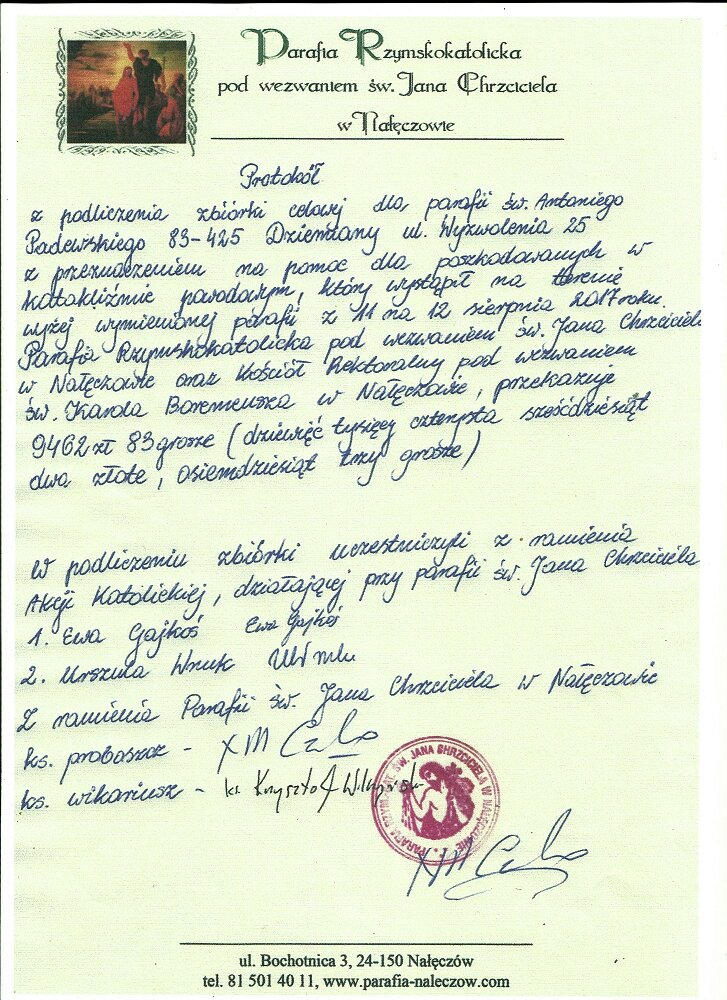 Parafia Rzymskokatolicka
pod wezwaniem św. Jana Chrzciciela
w Nałęczowie
Protokół
z podliczenia zbiórki celowej dla parafii św. Antoniego
Padewskiego 83-425 Dziemiany ul. Wyzwolenia 25
z przeznaczeniem na pomoc dla poszkodowanych w
kataklizmie powodowym, który wystąpił na terenie
wyżej wymienionej parafii z 11 na 12 sierpnia 2017 roku.
Parafia Rzymskokatolicka pod wezwaniem św. Jana Chrzciciela
w Nałęczowie oraz Kościół Rektoralny pod wezwaniem
św. Karola Boremeusza w Nałęczowie, przekazuje
9462 zł 83 grosze (dziewięć tysięcy czterysta sześćdziesiąt
dwa złote, osiemdziesiąt trzy grosze)
W podliczeniu zbiórki uczestniczyli z ramienia
Akcji Katolickiej, działającej przy parafii św. Jana Chrzciciela
1. Ewa Gajkoś Ewa Gajkoś
2. Urszula Wnuk
Z ramienia Parafii św. Jana Chrzciciela w Nałęczowie
ks. proboszcz -
ks. wikariusz - ks. Krzysztof
ŚW. JANA CHRZCICIELA W NAŁĘCZOWIE
ul. Bochotnica 3, 24-150 Nałęczów
tel. 81 501 40 11, www.parafia-naleczow.com